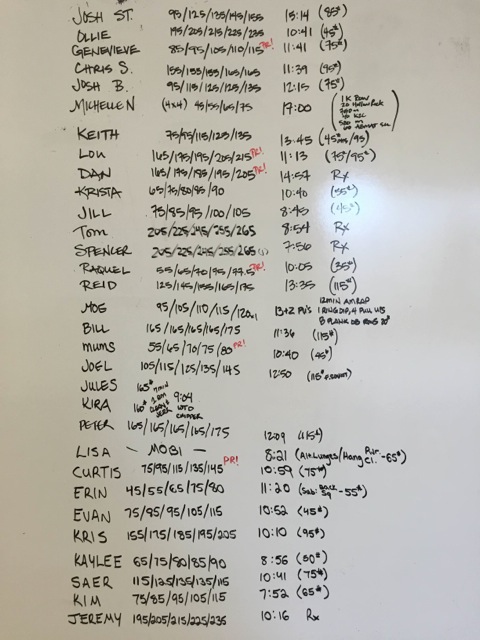 JOSH ST. 95/125/135/145/155 15:14 (85#)
OLLIE 195/205/215/225/235 10:41 (45#)
GENEVIEVE 85/95/105/110/115 PR! 11:41 (75#)
CHRIS S. 155/155/155/165/165 11:39 (95#)
JOSH B. 95/115/125/125/135 12:15 (75#)
MICHELLE N (4x4) 45/55/65/75 17:00 (1K Row
KEITH 75/95/115/125/135 13:45 (45/95)
LOU 165/175/195/205/215 PR! 11:13 (75/95#)
DAN 165/175/185/195/205 PR! 14:57 Rx
KRISTA 65/75/80/85/90 10:40 (55#)
JILL 75/85/95/100/105 8:45 (45#)
TOM 205/225/245/255/265 8:54 Rx
SPENCER 205/225/245/255/265 (1) 7:56 Rx
RAQUEL 55/65/70/75/77.5 PR! 10:05 (35#)
REID 125/145/155/165/175 13:35 (115#)
MOE 95/105/110/115/120 13+2 PU's 12MIN AMRAP
1 RING DIP, 4 PULL UPS
BILL 165/165/165/165/175 11:36 (115#)
MUMS 55/65/70/75/80 PR! 10:40 (45#)
JOEL 105/115/125/135/145 12:50
JULES 165#
KIRA 160# 9:04
CLEAN & JERK
PETER 165/165/165/165/175 12:09 (115#)
LISA — MOBI — 8:21 (Air Lunges/Hang Pwr Cl. -65#)
CURTIS 75/95/115/135/145 PR! 10:59 (75#)
ERIN 45/55/65/75/80 11:20 (Sub: Back Sq -55#)
EVAN 75/85/95/105/115 10:52 (45#)
KRIS 155/175/185/195/205 10:10 (95#)
KAYLEE 65/75/80/85/90 8:56 (50#)
SAER 115/125/135/135/115 10:41 (75#)
KIM 75/85/95/105/115 7:52 (65#)
JEREMY 195/205/215/225/235 10:16 Rx